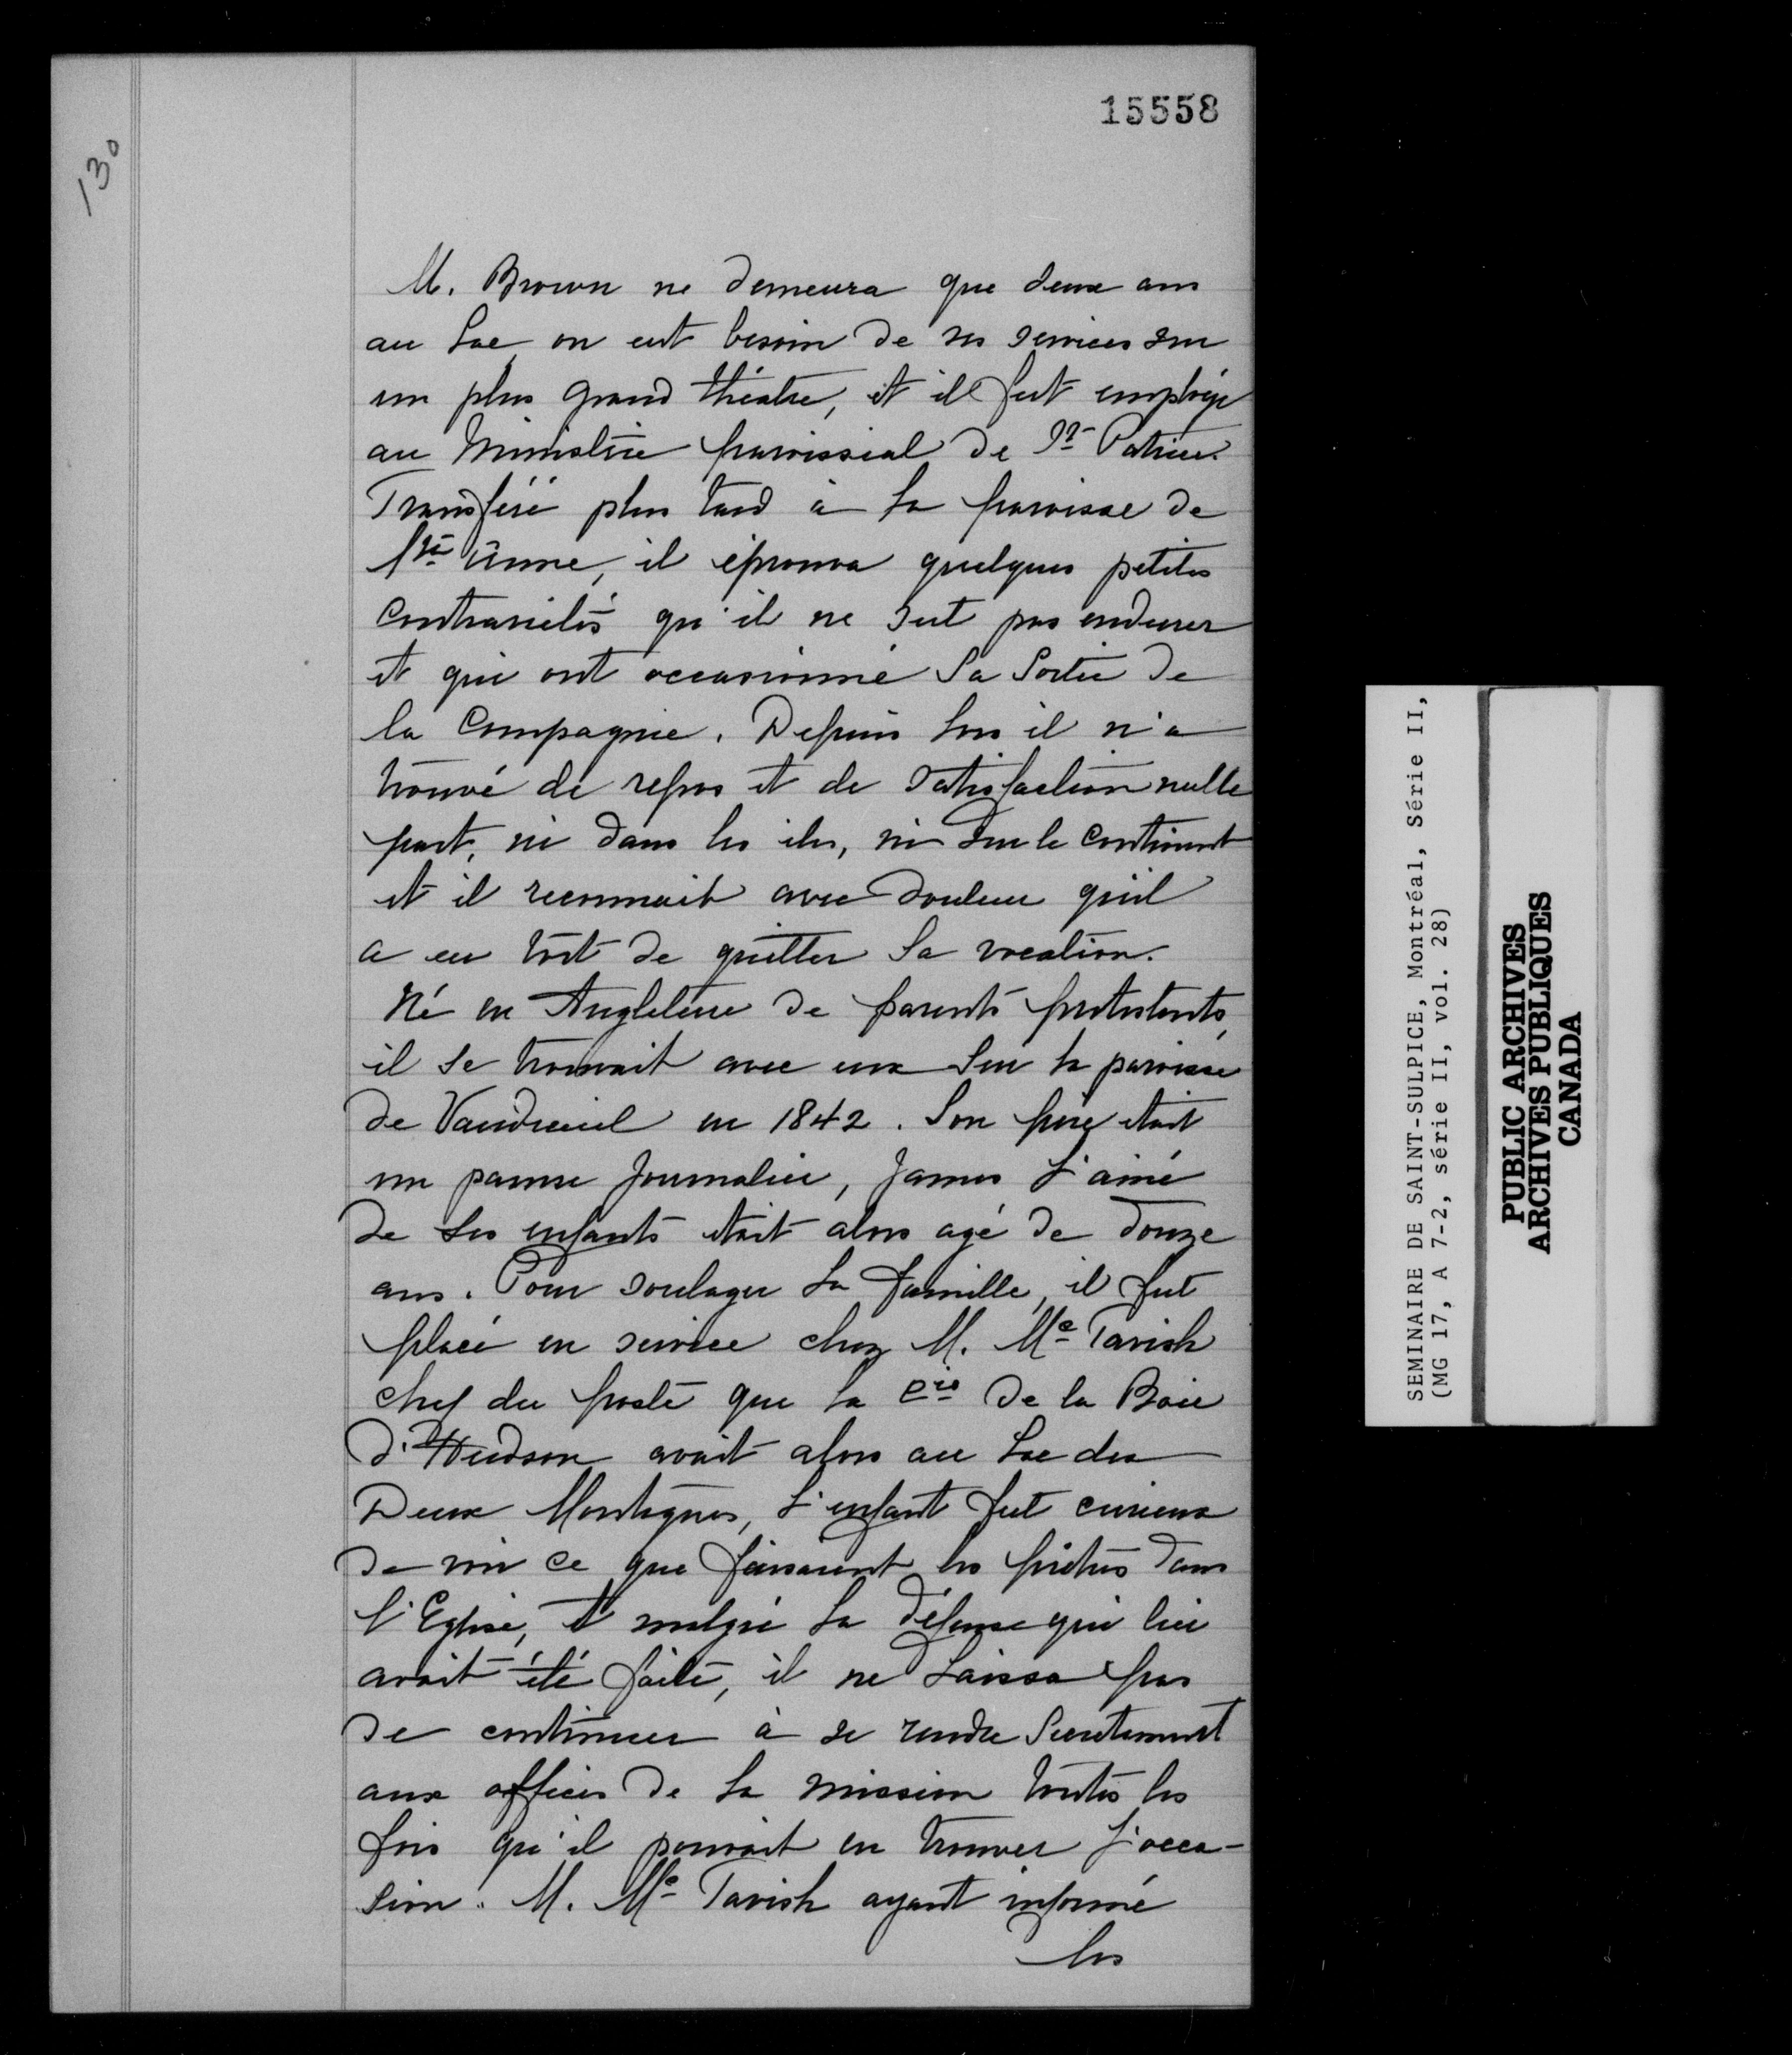 15558
130
M. Brown ne demeura que deux ans
au Lac, on eut besoin de ses services sur
un plus grand théatre, et il fut employé
au Ministère paroissial de St Patrice.
Transféré plus tard à la paroisse de
Ste Anne, il éprouva quelques petites
contrariétés qu'il ne sut pas endurer
et qui ont occasionné sa sortie de
la Compagnie. Depuis lors il n'a
trouvé de repos et de satisfaction nulle
part, ni dans les iles, ni sur le continent
et il reconnait avec douleur qu'il
a eu tort de quitter sa vocation.
Né en Angleterre de parents protestants,
il se trouvait avec eux sur la paroisse
de Vaudreuil en 1842. Son père était
un pauvre journalier, James l'ainé
de ses enfants était alors agé de douze
ans. Pour soulager la famille, il fut
placé en service chez M. Mc Tavish
chef du poste que la Cie de la Baie
d'Hudson avait alors au Lac des
Deux Montagnes, l'enfant fut curieux
de voir ce que faisaient les prêtres dans
l'Eglise, et malgré la défense qui lui
avait été faite, il ne laissa pas
de continuer à se rendre secrètement
aux offices de la mission toutes les
fois qu'il pouvait en trouver l'occa-
sion. M. Mc Tavish ayant informé
les
SEMINAIRE DE SAINT-SULPICE, Montréal, Série II,
(MG 17, A 7-2, série II, vol. 28)
PUBLIC ARCHIVES
ARCHIVES PUBLIQUES
CANADA